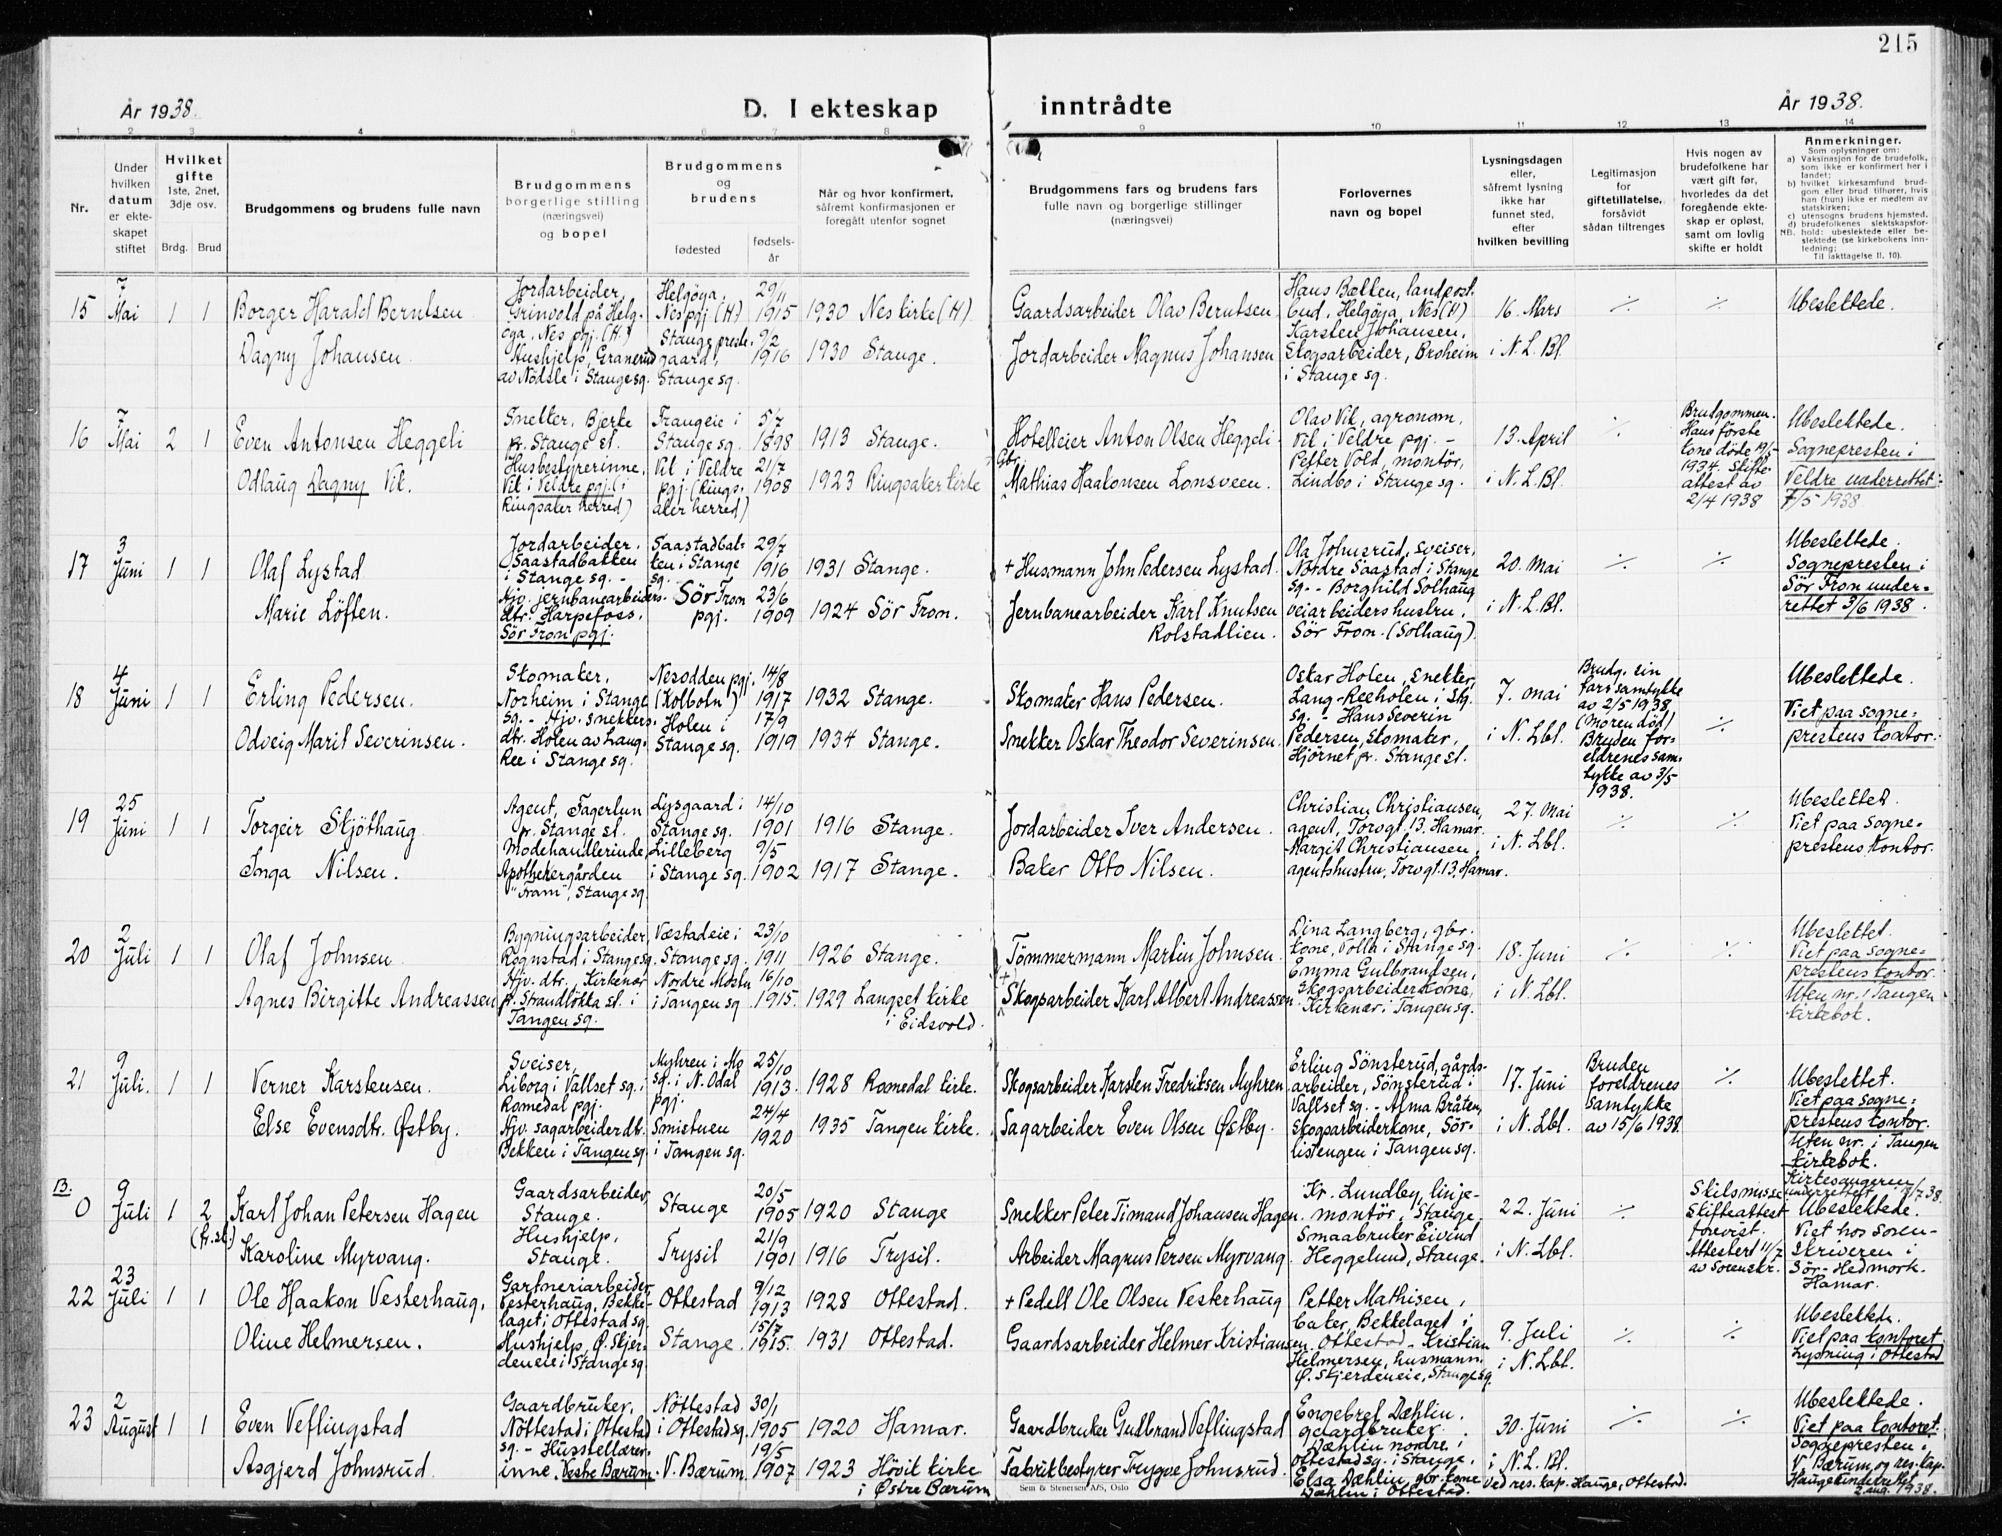 215
År 1938.
D. I ekteskap inntrådte
År 1938.
1 2 3 4 5 6 7 8 9 10 11 12 13 14
Nr.
Under hvilken datum er ekteskapet stiftet
Hvilket gifte 1ste, 2net, 3dje osv.
Brdg. Brud
Brudgommens og brudens fulle navn
Brudgommens borgerlige stilling (næringsvei) og bopel
Brudgommens og brudens
fødested
fødselsår
Når og hvor konfirmert, såfremt konfirmasjonen er foregått utenfor sognet
Brudgommens fars og brudens fars fulle navn og borgerlige stillinger (næringsvei)
Forlovernes navn og bopel
Lysningsdagen eller, såfremt lysning ikke har funnet sted, efter hvilken bevilling
Legitimasjon for giftetillatelse, forsåvidt sådan tiltrenges
Hvis nogen av brudefolkene har vært gift før, hvorledes da det foregående ekteskap er opløst, samt om lovlig skifte er holdt
Anmerkninger.
Som oplysninger om:
a) Vaksinasjon for de brudefolk, som ikke er konfirmert her i landet;
b) hvilket kirkesamfund brudgom eller brud tilhører, hvis han (hun) ikke er medlem av statskirken;
c) utensogns brudens hjemsted.
d) brudefolkenes slektskapsforhold: ubeslektede eller beslektede (se kirkebokens innledning;
NB. Til iakttagelse II. 10).
15
7 Mai
1 1
Borger Harald Berntsen
Dagny Johansen
Jordarbeider, Grinvold på Helgøya, Nes pgj. (H.)
Hushjelp, Granerud av Nödsle i Stange sg.
Helgöya, Nes pgj (H)
Stange prestegaard, Stange sg.
29/11 1915
9/2 1916
1930 Nes kirke (H)
1930 Stange.
Gaardsarbeider Olav Berntsen
Jordarbeider Magnus Johansen
Hans Bækken, landpostbud, Helgöya, Nes (H)
Karsten Johansen, Skogsarbeider, Broheim i Stange sg.
16. Mars i N. L. Bl.
⁒
⁒
Ubeslektede.
16
7 Mai
2 1
Even Antonsen Heggeli
Odlaug Dagny Vik.
Snekker, Bjerke pr. Stange st.
Husbestyrerinne, Vik i Veldre pgj. (i Ringsaker herred)
Frangeie i Stange sg.
Vik i Veldre pgj. (Ringsaker herred)
5/7 1898
21/7 1908
1913 Stange.
1923 Ringsaker kirke
Hotelleier Anton Olsen Heggeli
Gbr. Mathias Haakonsen Lonsveen.
Olav Vik, agronom, Vik i Veldre pgj. -
Petter Vold, montör, Lindbo i Stange sg.
13. April i N. L. Bl.
⁒
Brudgommen. Hans første kone døde 19/5-1934. Skifteattest av 2/4 1938
Ubeslektede.
Sognepresten i Veldre underrettet 7/5 1938.
17
3 Juni
1 1
Olaf Lystad
Marie Löften.
Jordarbeider, Saastadbakken i Stange sg. -
Hjv. jernbanearbeiders dtr. Harpefoss, Sör Fron pgj.
Saastadbakken i Stange sg.
Sör Fron pgj.
29/7 1916
23/6 1909
1931 Stange.
1924 Sör Fron.
+ Husmann John Pedersen Lystad.
Jernbanearbeider Karl Knutsen Rolstadlien.
Ola Johnsrud, sveiser, Nordre Saastad i Stange sg. - Borghild Solhaug veiarbeiders hustru, Sör Fron. (Solhaug).
20. Mai i N. L. Bl.
⁒
⁒
Ubeslektede.
Sognepresten i Sör Fron underrettet 3/6 1938.
18
4 Juni
1 1
Erling Pedersen.
Odveig Marit Severinsen.
Skomaker, Norheim i Stange sg. - Hjv. snekkers dtr. Holen av Lang-Ree i Stange sg.
Nesodden pgj. (Kolbotn)
Holen i Stange sg.
14/8 1917
17/9 1919
1932 Stange.
1934 Stange.
Skomaker Hans Pedersen.
Snekker Oskar Theodor Severinsen.
Oskar Holen, snekker, Lang-Reeholen i Stg. sg. - Hans Severin Pedersen, skomaker, Hjörnet pr. Stange st.
7. mai i N. Lbl.
Brudg. sin fars samtykke av 2/5 1938 (moren död)
Bruden foreldrenes samtykke av 3/5 1938.
⁒
Ubeslektede.
Viet paa sogneprestens kontor.
19
25 Juni
1 1
Torgeir Skjöthaug
Inga Nilsen.
Agent, Fagerlun pr. Stange st.
Modehandlerinde, Apothekergården "Fram", Stange sg.
Lysgaard i Stange sg.
Lilleberg i Stange sg.
14/10 1901
9/5 1902
1916 Stange.
1917 Stange.
Jordarbeider Iver Andersen.
Baker Otto Nilsen.
Christian Christiansen, agent, Torvgt. 13. Hamar.
-Margit Christiansen, agentshustru, Torvgt. 13, Hamar.
27. Mai i N. Lbl.
⁒
⁒
Ubeslektet.
Viet paa sogneprestens kontor.
20
2 Juli
1 1
Olaf Johnsen
Agnes Birgitte Andreassen
Bygningsarbeider, Rognstad i Stange sg.
Hjv. dtr. Kirkenær pr. Strandlökka st. i Tangen sg.
Væstadeie i Stange sg.
Nordre Mostu i Tangen sg
23/10 1911
16/10 1915.
1926 Stange.
1929 Langset kirke i Eidsvold.
Tömmermann Martin Johnsen
+ Skogsarbeider Karl Albert Andreassen
Dina Langberg, gbr. kone, Volla i Stange sg.
Emma Gulbrandsen, Skogsarbeiderkone, Kirkenær i Tangen sg.
18. Juni i N. Lbl.
⁒
⁒
Ubeslektet.
Viet paa sogneprestens kontor.
Uten nr. i Tangen kirkebok.
21
9 Juli.
1 1
Verner Karstensen.
Else Evensdtr. Østby.
Sveiser, Liborg i Vallset sg. i Romedal pgj.
Hjv. sagarbeider dtr. Bekken i Tangen sg.
Myhren i Mo sg. i N. Odal pgj.
Smietuen i Tangen sg.
25/10 1913.
24/4 1920
1928 Romedal kirke.
1935 Tangen kirke.
Skogsarbeider Karsten Fredriksen Myhren
Sagarbeider Even Olsen Østby.
Erling Sönsterud, gårdsarbeider, Sönsterud i Vallset sg. - Alma Bråten, Skogsarbeiderkone, Sörlistengen i Tangen sg.
17. Juni i N. Lbl.
Bruden foreldrenes samtykke av 15/6 1938.
⁒
Ubeslektet.
Viet paa sogneprestens kontor.
Uten nr. i Tangen kirkebok.
B.
0
9 Juli
1 2 (fr.sk.)
Karl Johan Petersen Hagen
Karoline Myrvang.
Gaardsarbeider, Stange.
Hushjelp, Stange.
Stange
Trysil
20/5 1905
21/9 1901
1920 Stange
1916 Trysil.
Snekker Peter Timand Johansen Hagen
Arbeider Magnus Persen Myrvang
Kr. Lundby, linjemontör, Stange.
Smaabruker Eivind Heggelund, Stange.
22. Juni i N. Lbl.
⁒
Skilsmisse Skifteattest forevist. Attestert 11/7 av Sorenskr.
Kirkesangeren underrettet 11/7 38.
Ubeslektede.
Viet hos Sorenskriveren i Sör-Hedmark. Hamar.
22
23 Juli
1 1
Ole Haakon Vesterhaug.
Oline Helmersen.
Gartneriarbeider, Vesterhaug, Bekkelaget i Ottestad sg.
Hushjelp, Ø. Skjerdeneie i Stange sg.
Ottestad
Stange.
9/12 1913
15/7 1915.
1928 Ottestad.
1931 Ottestad.
+ Pedell Ole Olsen Vesterhaug
Gaardsarbeider Helmer Kristiansen.
Petter Mathisen, baker, Bekkelaget i Ottestad - Kristian Helmersen, husmann. Ø. Skjerdeneie, Stange sg.
9. Juli i N. Lbl.
⁒
⁒
Ubeslektede.
Viet paa kontoret.
Lysning i Ottestad
23
2 August
1 1
Even Veflingstad
Asgjerd Johnsrud.
Gaardbruker, Nöttestad i Ottestad sg. - Husstellærerinne, Vestre Bærum.
Nöttestad i Ottestad sg.
V. Bærum.
30/1 1905
19/5 1907
1920 Hamar.
1923 Hövik kirke i Østre Bærum
Gaardbruker Gudbrand Veflingstad
Fabrikbestyrer Trygve Johnsrud.
Engebret Dæhlin, gaardbruker Dæhlin nordre i Ottestad sg. i Stange.
Elsa Dæhlin, gbr. kone Dæhlin i Ottestad.
30. Juni i N. L. Bl.
Ved res. kap. Hauge, Ottestad.
⁒
⁒
Ubeslektede.
Viet paa kontoret.
Sognepresten i V. Bærum og res. kap. Hauge underrettet 2. aug. 1938.
Sem & Stenersen A/S, Oslo